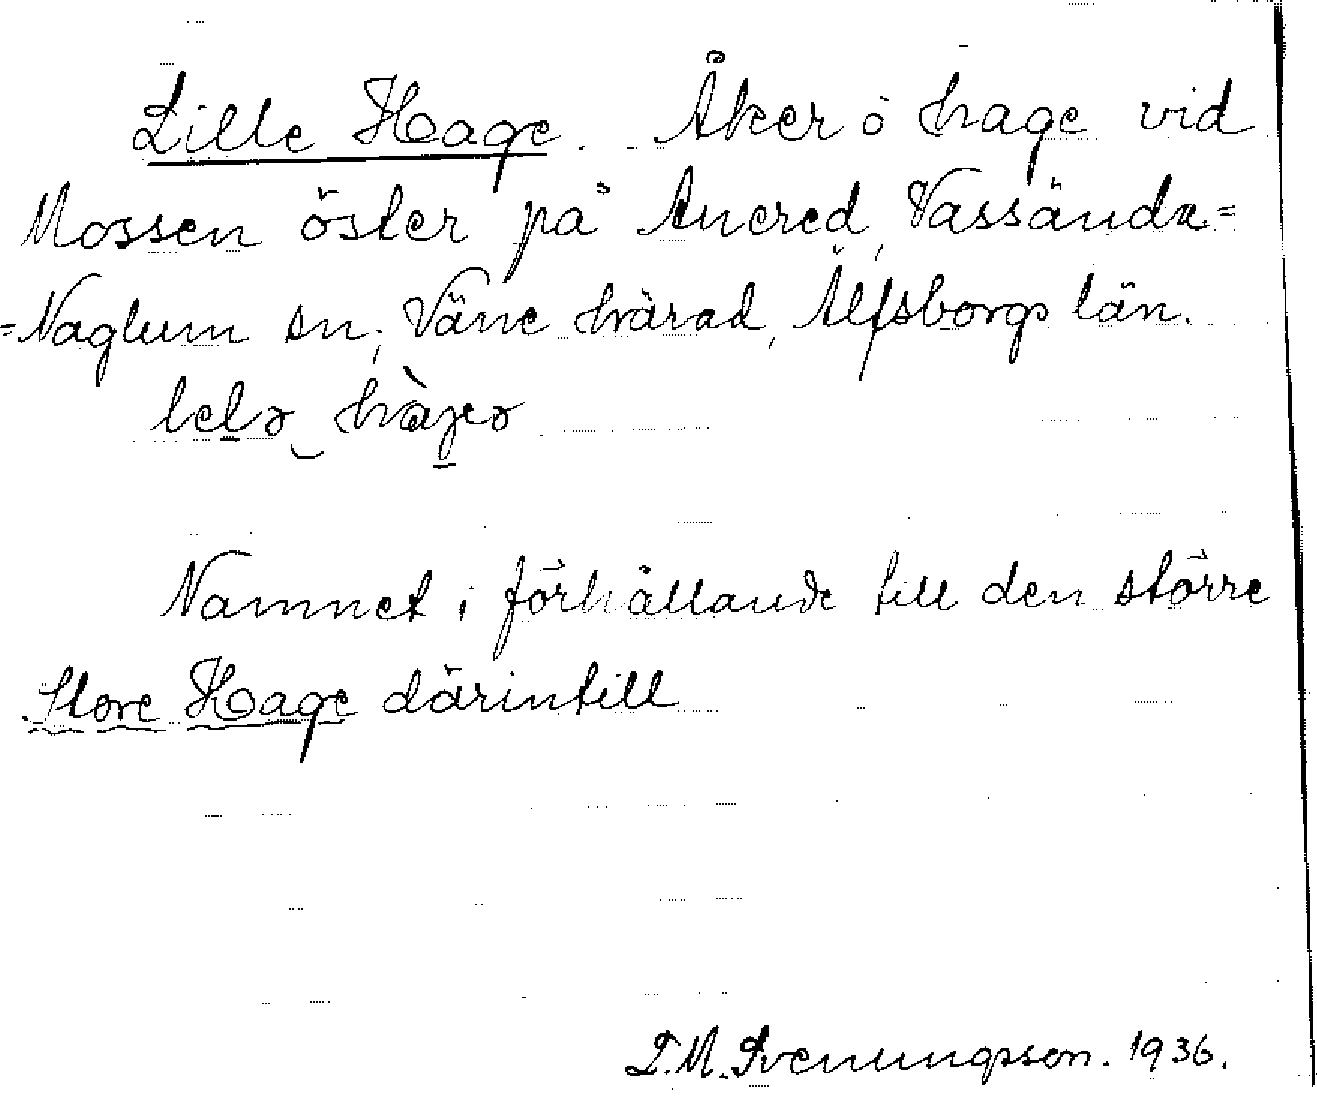 Lille Hage. Åker o hage vid
Mossen öster på Ancred, Vassända=
=Naglum sn, Väne härad, Älfsborgs län.
Namnet i förhållande till den större
Store Hage därintill
T.M. Svenungsson. 1936.